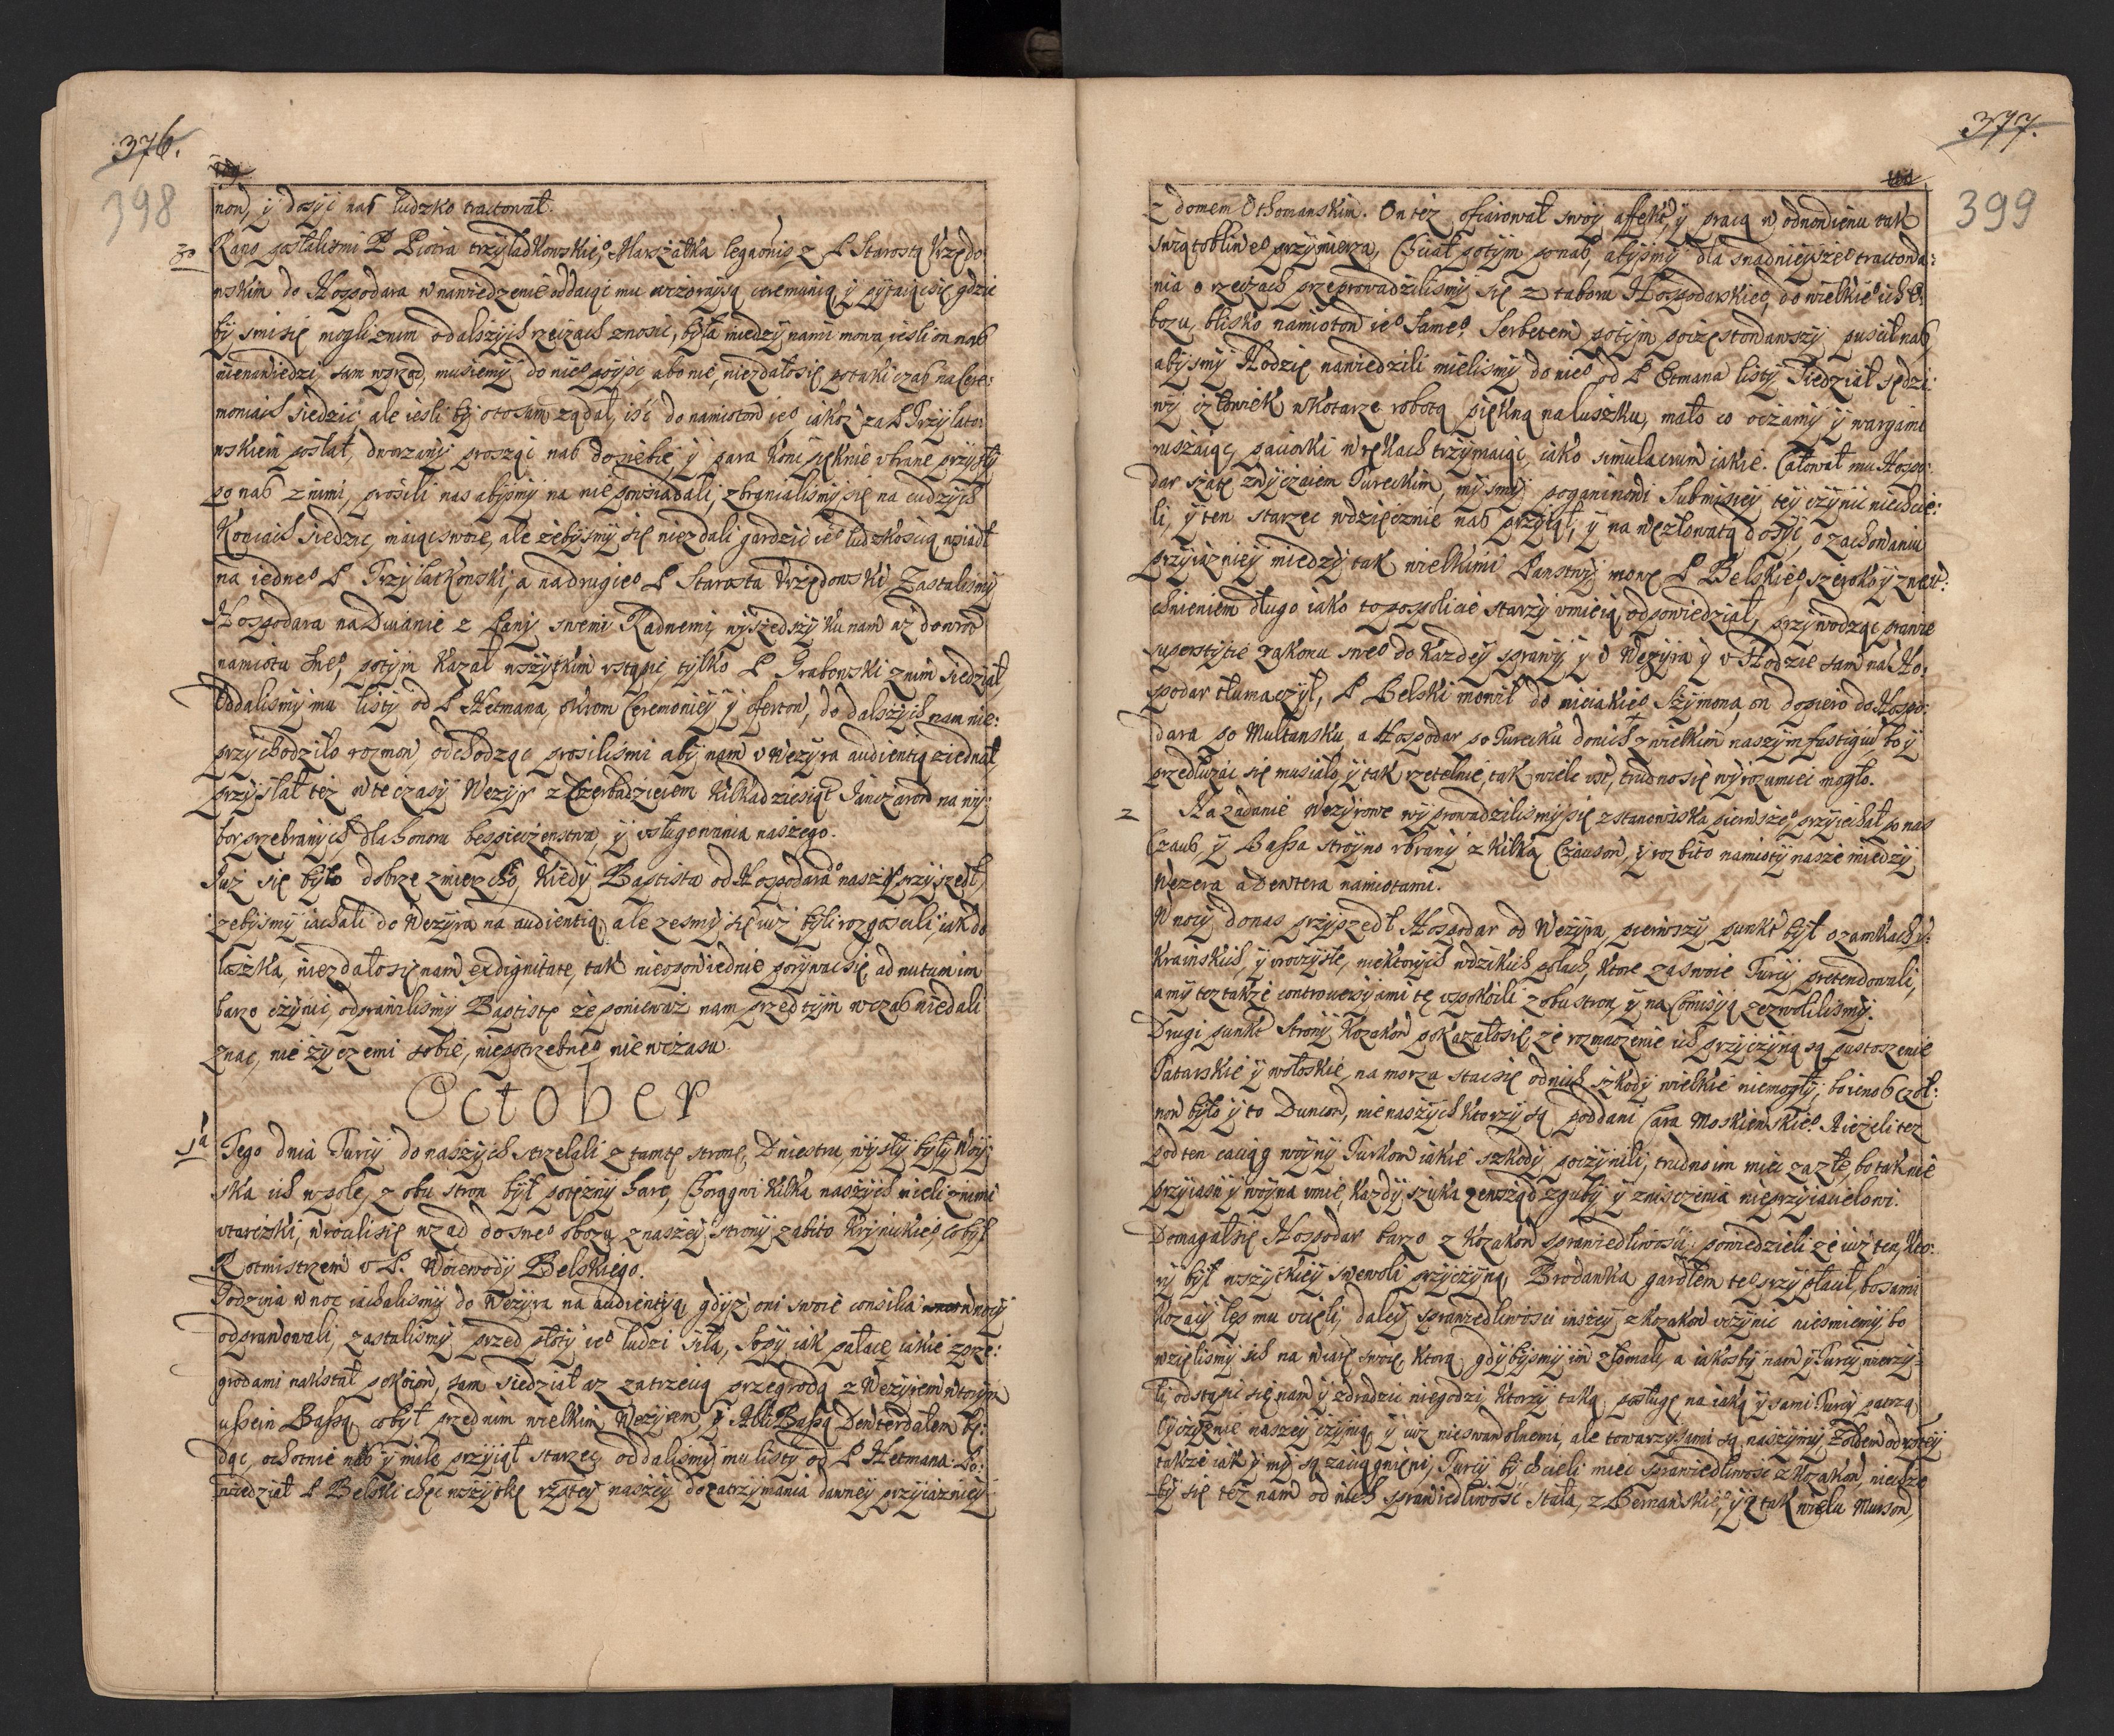 376.
398
now, ÿ dosÿć nas ludzko tractował.
30 Rano posłalismi P. Piotra trzÿladkowskie°, Marszałka legaciÿ z P Starostą Vrzędo
wskim do Hospodara w nawiedzenie oddaiąc mu wczoraÿszą ceremonią ÿ pÿtaiąc się gdzie
bÿ smi się mogli z nim o dalszÿch rzeczach znosić, bÿła miedzÿ nami mowa, iesli on nas
nienawiedzi sam wprzod, musiemÿ do nie° poÿsc abo nie, niezdało się po taki czas na Cere:
moniach siedzić, ale iesli bÿ oto sam ządał, iść do namiotow ie°, iakoż za P Trzÿlato:
wskiem posłał, dworzanÿ prosząc nas do siebie, ÿ para koni pięknie vbrane przÿszłÿ
po nas z nimi, prosili nas abÿsmÿ na nie powsiadali, zbranialismÿ się na cudzÿch
Koniach siedziec, maiąc swoie, ale zebÿsmÿ się niezdali gardzić ie° ludzkoscią wsiadł
na iedne° P Trzÿlatkowski, a na drugie° P Starosta Vrzędowski Zastalismÿ
Hospodara na Diwanie z Panÿ swemi Radnemi, wÿszedszÿ ku nam aż do wrot
namiotu swe°, potÿm kazał wszÿtkim vstąpić tÿlko P Grabowski z nim siedział,
Oddalismÿ mu listÿ od P Hetmana, okrom Ceremonieÿ ÿ ofertow, do dalszÿch nam nie:
przÿchodziło rozmow, odchodząc prosilismi abÿ nam v Wezÿra audientią ziednał
przÿsłał też w te czasÿ Wezÿr z Czorbadzieiem kilkadziesiąt Janczarow na wÿ:
bor przebranÿch dla honoru bespieczenstwa, ÿ vsługowania naszego.
Już się bÿło dobrze zmierzchło, kiedÿ Baptista od Hospodara do naszÿ przÿszedł,
zebÿsmÿ iachali do Wezÿra na audientią, ale zesmÿ się iuż bÿli rozgoscili, iak do
łozka, niezdało się nam ex dignitate, tak nieopowiednie porÿwać się, ad nutum im
barzo czÿnić, odprawilismÿ Baptistę że ponieważ nam przed tÿm wczas niedali
znać, nie zÿczemi sobie, niepotrzebne° niewczasu.
October
1a Tego dnia Turcÿ do naszÿch strzelali z tamtę stronę Dniestru, wÿszłÿ bÿłÿ Woÿ:
ska ich w pole, z obu stron bÿł potężnÿ harc, Chorągwi kilka naszÿch mieli z nimi
vtarczki, wrocili się wzad do swe° obozu, z naszeÿ stronÿ zabito Krÿnickie°, co bÿł
Rotmistrzem v P. Woiewodÿ Belskiego.
Godzina w noc iachalismÿ do Wezÿra na audientÿą, gdÿż oni swoie consilia w nocÿ
odprawowali, zastalismÿ przed płotÿ ie° ludzi siła, szopÿ iak pałace iakie z prze:
grodami na kstał pokoiow, sam siedział aż za trzecią przegrodą z Wezÿrem wtorÿm
ussein Bassą, co bÿł przed nim wielkim Wezÿrem, ÿ Alli Bassą Dewterdałem bę:
dąc, ochotnie nas ÿ mile przÿiął starzec, oddalismÿ mu listÿ od P Hetmana. Po:
wiedział P Belski chęć wszÿtkę rzpteÿ naszeÿ do zatrzÿmania dawneÿ przÿiazniÿ
377.
399
z domem Othomanskim. On też ofiarował swoÿ affekt, ÿ pracą w odnowieniu tak
swiątobliwe° przÿmierza, Chciał potÿm po nas, abÿsmÿ dla snadnieÿsze° tractowa:
nia o rzeczach przeprowadzilismÿ się z taboru Hospodarskie°, do wielkie° ich O:
bozu, blisko namiotow ie° same°, Serbetem potÿm poczęstowawszÿ puscił nas,
abÿsmÿ Hodzię nawiedzili mielismÿ do nie° od P Etmana listÿ. Siedział sędzi:
wÿ człowiek w kotarze robotą piękną na łuszku, mało co oczamÿ ÿ wargami
ruszaiąc, paciorki w rękach trzÿmaiąc, iako simulacrum iakie. Całował mu Hospo:
dar szatę zwÿczaiem Tureckim, mÿ smÿ poganinowi Submisieÿ teÿ czÿnić niechcie:
li, ÿ ten starzec wdzięcznie nas przÿiął, ÿ na węzłowatą dosÿć, o zachowaniu
przÿiazniey miedzÿ tak wielkimi Panstwÿ mowę P Belskie°, szeroko ÿ z nat:
chnieniem długo iako to pospolicie starzÿ vmieią odpowiedział, przÿwodząc prawie
superstÿtie zakonu swe° do każdeÿ sprawÿ, ÿ v Wezÿra ÿ v Hodzie sam nas Ho:
spodar tłumaczÿł, P Belski mowił do nieiakie° Szÿmona, on dopiero do Hospo:
dara po Multansku, a Hospodar po Turecku do nich z wielkim naszÿm fastigiũ, bo ÿ
przedłużać się musiało, ÿ tak rzetelnie, tak wiele vst, trudno się wÿrozumieć mogło.
2 Na ządanie Wezÿrowe wÿprowadzilismÿ się z stanowiska pierwsze°, przÿiechał po nas
Czaus, ÿ Bassa stroÿno vbranÿ z kilką Czausow, ÿ rozbito namiotÿ nasze miedzÿ
Wezera a Dewtera namiotami.
W nocÿ do nas przÿszedł Hospodar od Wezÿra, pierwszÿ punkt bÿł o zamkach V:
krainskich, ÿ vroczÿskę, niektorÿch w dzikich polach, ktore za swoie Turcÿ pretendowali,
a mÿ tez takze controuersÿami tę vspokoili z obu stron, ÿ na Comisÿą zezwolilismÿ.
Drugi punkt stronÿ Kozakow pokazało się, że rozmnozenie ich przÿczÿną są pustoszenie
Tatarskie ÿ wołoskie, na morzu stać się od nich szkodÿ wielkie niemogłÿ, bo ieno 6 czoł:
now bÿło ÿ to Duncow, nie naszÿch ktorzÿ są poddani Cara Moskiewskie°. A ieżeli też
pod ten zaciąg woÿnÿ Turkow iakie szkodÿ poczÿnili, trudno im mieć za złe, bo tak nie
przÿiazń ÿ woÿna vmie, każdÿ szuka zewsząd zgubÿ ÿ znisczenia nieprzÿiacielowi.
Domagał się Hospodar barzo z Kozakow sprawiedliwosci, powiedzieli że iuż ten, kto:
rÿ bÿł wszÿtkieÿ swewoli przÿczÿną, Brodawka gardłem te° przÿpłacił, bo sami
Kozacÿ łep mu vcięli, daleÿ sprawiedliwosci inszeÿ z Kozakow vczÿnić niesmiemÿ, bo
wzięlismÿ ich na wiarę swoię ktorą gdÿbÿsmÿ im złomali, a iakosbÿ nam ÿ Turcÿ wierzÿ:
li, odstąpić się nam ÿ zdradzić niegodzi, ktorzÿ taką posługę na iaką ÿ sami Turcÿ patrzą
Oÿczÿznie naszeÿ czÿnią, ÿ iuż nieswawolnemi, ale towarzÿszami są naszÿmi, Zołdem od rzpteÿ
także iak ÿ mÿ są zaciągnięni, Turcÿ bÿ chcieli mieć sprawiedliwosc z Kozakow, niechże
bÿ się też nam od nich sprawiedliwość stała, z Bernawskie°, ÿ z tak wielu Mursow,